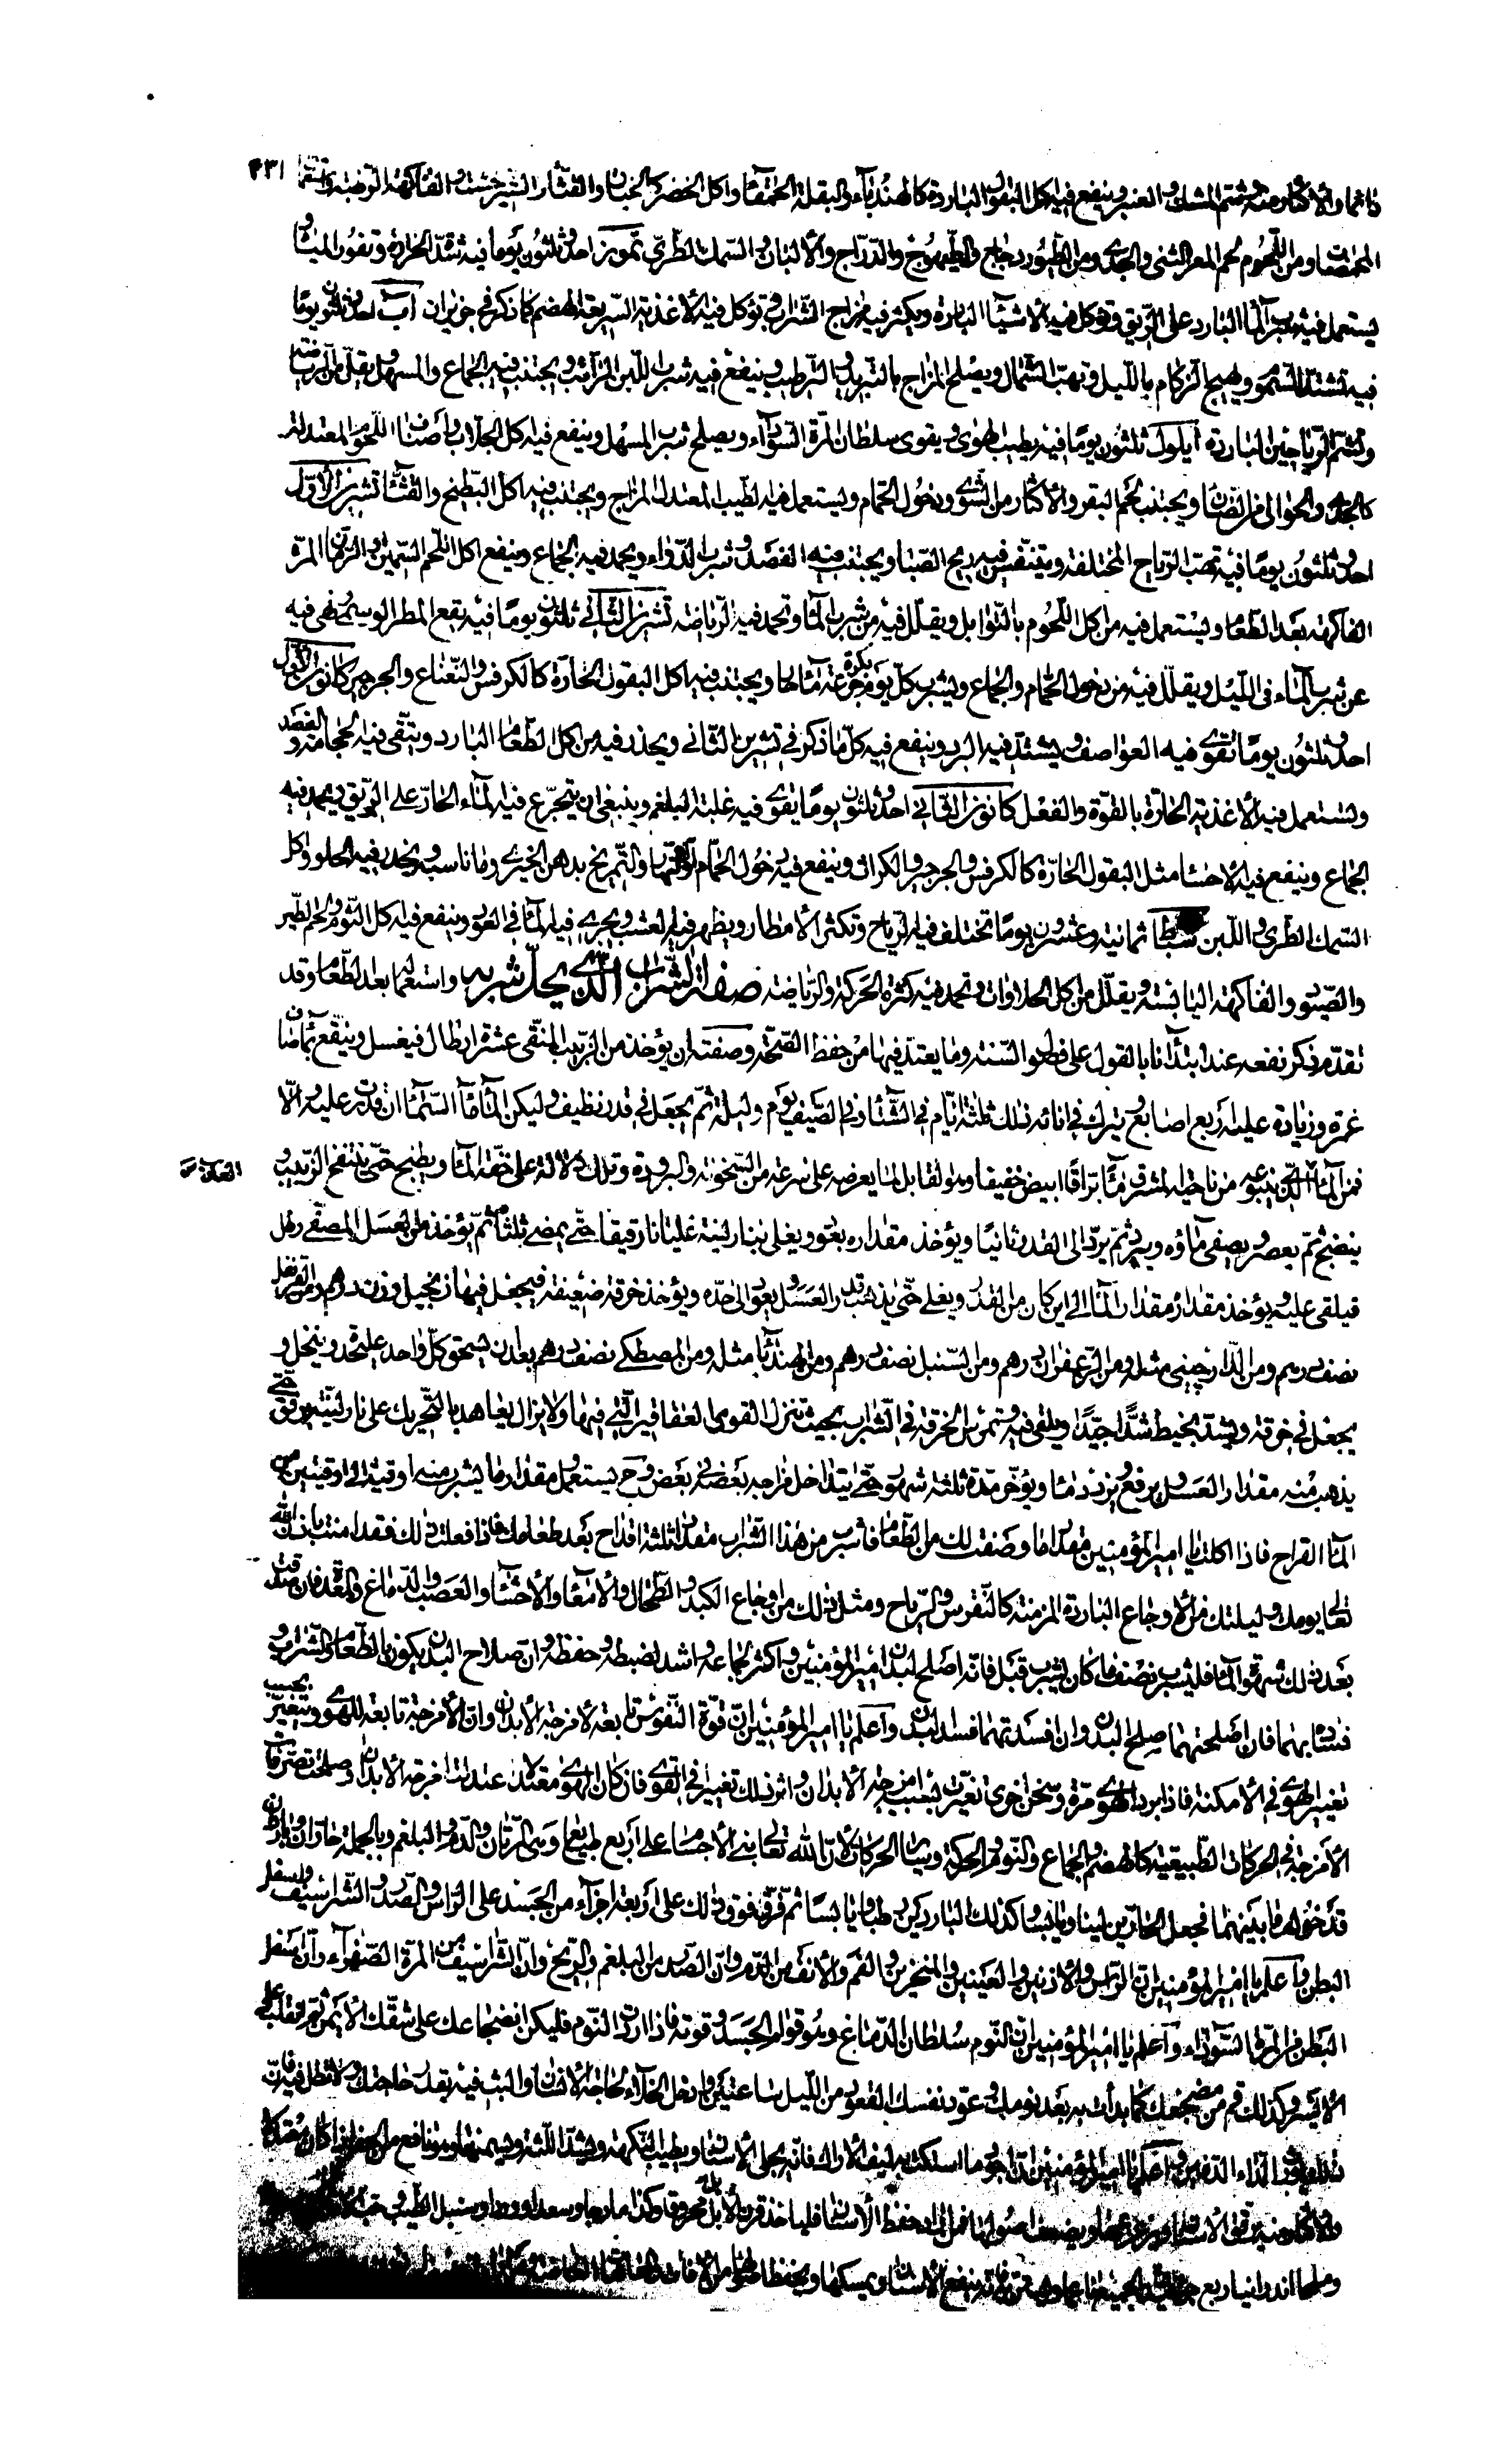 ٤٣١
دائما والاكثار منه وشم المسك والعنبر وينفع فيه اكل البقول الباردة كالهندباء والبقلة الحمقاء واكل الخضر كالخيار والقثاء والشيرخشت والفاكهة الرطبة واستعمال
المحمضات ومن اللحوم لحم المعز الثنى والجدى ومن الطيور الدجاج والطيهوج والدراج والالبان والسمك الطرى تموز احد وثلثون يوما فيه شدة الحرارة وتغور المياه و
يستعمل فيه شرب الماء البارد على الريق ويؤكل فيه الاشياء الباردة ويكثر فيه مزاج الشراب وتؤكل فيه الاغذية السريعة الهضم كما ذكر فى حزيران آب احد وثلثون يوما
فيه تشتد السموم ويهيج الزكام بالليل وتهب الشمال ويصلح المزاج بالتبريد والترطيب وينفع فيه شرب اللبن الرائب ويجتنب فيه الجماع والمسهل ويقلل من الرياضة
وتشم الرياحين الباردة أيلول ثلثون يوما فيه يطيب الهوى ويقوى سلطان المرة السوداء ويصلح شرب المسهل وينفع فيه اكل الحلاوات واصناف اللحوم المعتدلة
كالجداء والحوالى من الضأن ويجتنب لحم البقر والاكثار من الشوى ودخول الحمام ويستعمل فيه الطيب المعتدل المزاج ويجتنب فيه اكل البطيخ والقثاء تشرين الاول
احد وثلثون يوما فيه تهب الرياح المختلفة ويتنفس فيه ريح الصبا ويجتنب فيه الفصد وشرب الدواء ويحمد فيه الجماع وينفع اكل اللحم السمين والرمان المز
الفاكهة بعد الطعام ويستعمل فيه من اكل اللحوم بالتوابل ويقلل فيه من شرب الماء وتحمد فيه الرياضة تشرين الثانى ثلثون يوما فيه يقع المطر الوسمى وينهى فيه
عن شرب الماء فى الليل ويقلل فيه من دخول الحمام والجماع ويشرب كل يوم بكرة جرعة ماء حار ويجتنب فيه اكل البقول الحارة كالكرفس والنعناع والجرجير كانون الاول
احد وثلثون يوما تقوى فيه العواصف ويشتد فيه البرد وينفع فيه كل ما ذكر فى تشرين الثانى ويحذر فيه من اكل الطعام البارد ويتقى فيه الحجامة والفصد
وتستعمل فيه الاغذية الحارة بالقوة والفعل كانون الثانى احد وثلثون يوما يقوى فيه غلبة البلغم وينبغى ان يتجرع فيه الماء الحار على الريق ويحمد فيه
الجماع وينفع فيه الاحشاء مثل البقول الحارة كالكرفس والجرجير والكراث وينفع فيه دخول الحمام اول النهار والتمريخ بدهن الخيرى وما ناسبه ويحذر فيه الحلو واكل
السمك الطرى واللبن شباط ثمانية وعشرون يوما تختلف فيه الرياح وتكثر الامطار ويظهر فيه العشب ويجرى فيه الماء فى العود وينفع فيه اكل الثوم ولحم الطير
والصيود والفاكهة اليابسة ويقلل من اكل الحلاوات وتحمد فيه كثرة الحركة والرياضة صفة الشراب الذى يحل شربه واستعماله بعد الطعام وقد
تقدم ذكر نفعه عند ابتدائنا بالقول على فصول السنة وما يعتمد فيها من حفظ الصحة وصفته ان يؤخذ من الزبيب المنقى عشرة ارطال فيغسل وينقع بماء صاف
غمره وزيادة عليه اربع اصابع ويترك فى انائه ذلك ثلثة ايام فى الشتاء وفى الصيف يوم وليلة ثم يجعل فى قدر نظيف وليكن الماء ماء السماء ان قدرت عليه والا
فمن الماء الذى ينبوعه من ناحية المشرق ماء براقا ابيض خفيفا وهو القابل لما يعرضه على سرعة من السخونة والبرودة وتلك دلالة على خفة الماء ويطبخ حتى ينتفخ الزبيب و
ينضج ثم يعصر ويصفى ماؤه ويبرد ثم يرد الى القدر ثانيا ويؤخذ مقداره بعود ويغلى بنار لينة غليانا رقيقا حتى يمضى ثلثاه ثم يؤخذ من العسل المصفى رطل
فيلقى عليه ويؤخذ مقداره ومقدار الماء الى اين كان من القدر ويغلى حتى يذهب قدر العسل ويعود الى حده ويؤخذ خرقة ضعيفة فيجعل فيها زنجبيل وزن درهم ومن القرنفل
نصف درهم ومن الدارچينى مثله ومن الزعفران درهم ومن السنبل نصف درهم ومن الهندباء مثله ومن المصطكى نصف درهم بعد ان يسحق كل واحد على حدة وينخل و
يجعل فى خرقة ويشد بخيط شدا جيدا ويلقى فيه وتمرس الخرقة فى الشراب بحيث تنزل القوى العقاقير التى فيها ولا يزال يعاهد بالتحريك على نار لينة برفق حتى
يذهب منه مقدار العسل ويرفع ويبرد دائما ويؤخر مدة ثلثة شهور حتى يتداخل مزاجه بعضه فى بعض وح يستعمل ومقدار ما يشرب منه اوقية الى اوقيتين من
الماء القراح فاذا اكلت يا امير المؤمنين مقدار ما وصفت لك من الطعام فاشرب من هذا الشراب مقدار ثلثة اقداح بعد طعامك فاذا فعلت ذلك فقد امنت باذن الله
تعالى يومك وليلتك من الاوجاع الباردة المزمنة كالنقرس والرياح ومثل ذلك من اوجاع الكبد والطحال والامعاء والاحشاء والعصب والدماغ والمعدة فان حدثت
بعد ذلك شهوة الماء فليشرب نصف ما كان يشرب قبل فانه اصلح لبدن امير المؤمنين واكثر لجماعه واشد لضبطه وحفظه وان صلاح البدن يكون بالطعام والشراب و
فساده بهما فان اصلحتهما صلح البدن وان افسدتهما فسد البدن واعلم يا امير المؤمنين ان قوة النفوس تابعة لامزجة الابدان وان الامزجة تابعة للهوى وتتغير بحسب
تغير الهوى فى الامكنة فاذا برد الهوى مرة وسخن اخرى تغيرت بسببه امزجة الابدان واثر ذلك تغييرا فى القوى فاذا كان الهوى معتدلا اعتدلت امزجة الابدان وصلحت تصرفات
الامزجة فى الحركات الطبيعية كالهضم والجماع والنوم والحركة وساير الحركات لان الله تعالى بنى الاجسام على اربع طبايع وهى المرتان والدم والبلغم وبالجملة حاران وباردان
قد خولف ما بينهما فجعل الحارين لينا ويابسا وكذلك الباردين رطبا ويابسا ثم فرق فوق ذلك على اربعة اجزاء من الجسد على الراس والصدر والشراسيف واسفل
البطن واعلم يا امير المؤمنين ان الراس والاذنين والعينين والمنخرين والفم والانف من الدم وان الصدر من البلغم والريح وان الشراسيف من المرة الصفراء وان اسفل
البطن من المرة السوداء واعلم يا امير المؤمنين ان النوم سلطان الدماغ وهو قوام الجسد وقوته فاذا اردت النوم فليكن اضطجاعك على شقك الايمن ثم انقلب على
الايسر وكذلك قم من مضجعك كما بدأت به بعد نومك وعود نفسك القعود من الليل ساعتين وادخل الخلاء لحاجة الانسان والبث فيه بقدر حاجتك ولا تطل فيه فان
ذلك يورث الداء الدفين واعلم يا امير المؤمنين ان اجود ما استكت به ليف الاراك فانه يجلى الاسنان ويطيب النكهة ويشد اللثة ويسمنها وهو نافع من الحفر اذا كان معتدلا
والاكثار منه يرق الاسنان ويزعزعها ويضعف اصولها فمن اراد حفظ الاسنان فليأخذ قرن الابل محروقا وكزمازجا وسعدا ووردا وسنبل الطيب وحب
وملحا اندرانيا ربع ... ينفع الاسنان ويمسكها ويحفظ اصولها من الافات العارضة